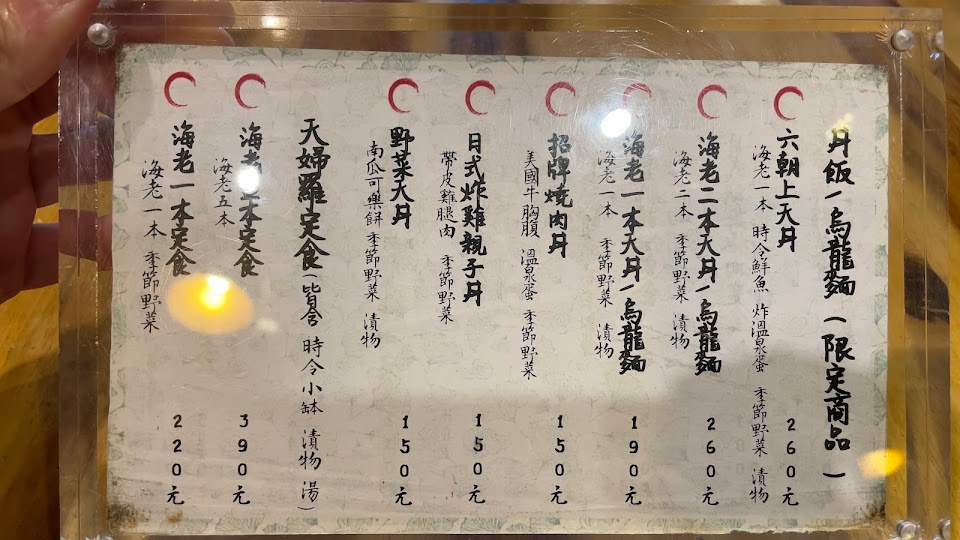 丼飯/烏龍麵(限定商品)
六朝上天丼 260元
海老一本 時令鮮魚 炸溫泉蛋 季節野菜 漬物
海老二本天丼/烏龍麵 260元
海老二本 季節野菜 漬物
海老一本天丼/烏龍麵 190元
海老一本 季節野菜 漬物
招牌燒肉丼 150元
美國牛胸腹 溫泉蛋 季節野菜
日式炸雞親子丼 150元
帶皮雞腿肉 季節野菜
野菜天丼 150元
南瓜可樂餅 季節野菜 漬物
天婦羅定食(皆含 時令小缽 漬物 湯)
海老 本定食 390元
海老五本
海老一本定食 220元
海老一本 季節野菜